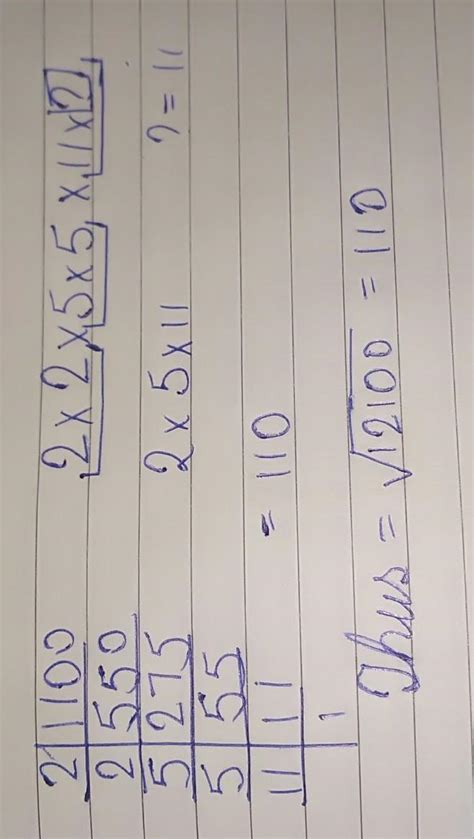 2 | 1100
2 | 550
5 | 275
5 | 55
11 | 11
1
2 x 2 x 5 x 5 x 11 x ?
2 x 5 x 11
? = 11
= 110
Thus = √12100 = 110